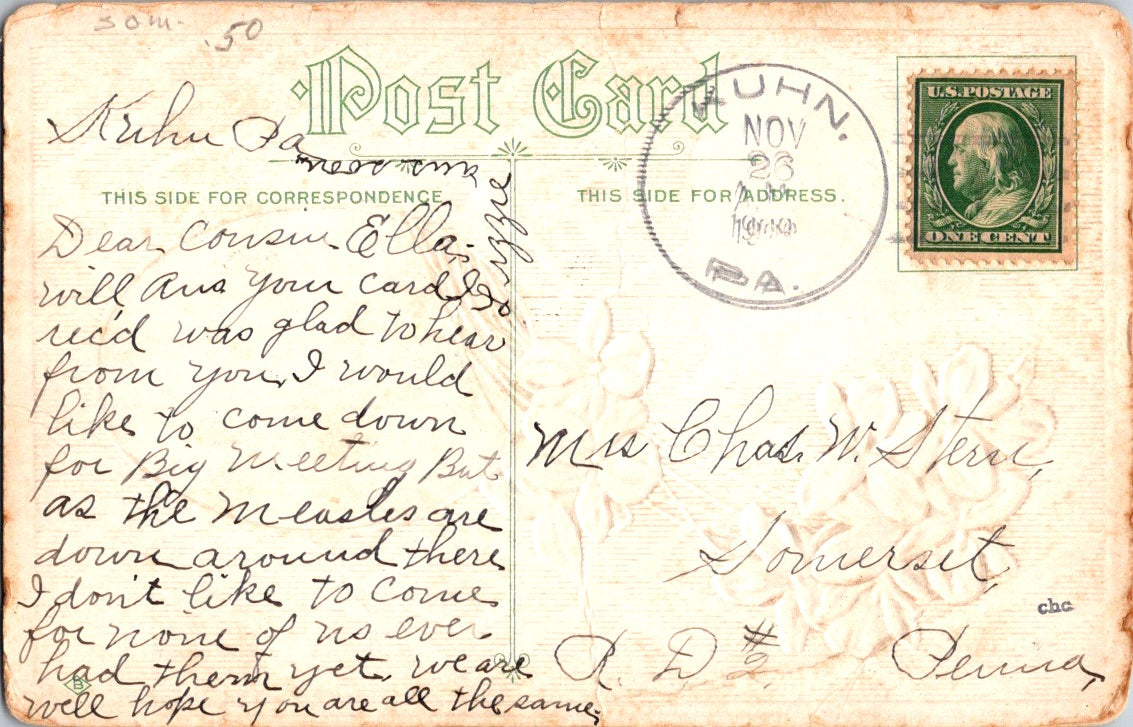 som.
.50
Post Card
Kuhn Pa
THIS SIDE FOR CORRESPONDENCE
Dear Cousin Ella.
will Ans your card I
rec'd was glad to hear
from you, I would
like to come down
for Big Meeting But
as the Measles are
down around there
I don't like to come
for none of us ever
had them yet. we are
well hope you are all the same.
ans soon
Lizzie
THIS SIDE FOR ADDRESS.
KUHN.
NOV
26
PA.
U.S. POSTAGE
ONE CENT
Mrs Chas. W. Stern,
Somerset,
R. D #2. Penna,
chc
B